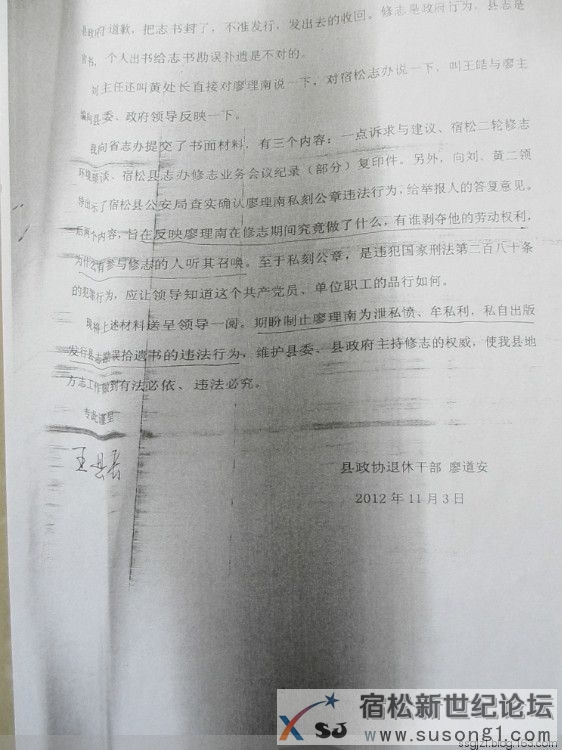 县政府道歉，把志书封了，不准发行，发出去的收回。修志是政府行为，县志是
官书，个人出书给志书勘误补遗是不对的。
刘主任还叫黄处长直接对廖理南说一下，对宿松志办说一下，叫王皓与廖主
编向县委、政府领导反映一下。
我向省志办提交了书面材料，有三个内容：一点诉求与建议、宿松二轮修志
环境琐谈、宿松县志办修志业务会议纪录（部分）复印件。另外，向刘、黄二领
导出示了宿松县公安局查实确认廖理南私刻公章违法行为，给举报人的答复意见。
后两个内容，旨在反映廖理南在修志期间究竟做了什么，有谁剥夺他的劳动权利，
为什么有参与修志的人听其召唤。至于私刻公章，是违犯国家刑法第二百八十条
的犯罪行为，应让领导知道这个共产党员、单位职工的品行如何。
现将上述材料送呈领导一阅。期盼制止廖理南为泄私愤、牟私利，私自出版
发行县志勘误拾遗书的违法行为，维护县委、县政府主持修志的权威，使我县地
方志工作做到有法必依、违法必究。
专此谨呈
县政协退休干部 廖道安
2012年11月3日
宿松新世纪论坛
SJ
www.susong1.com
ssgjzl.blog.163.com